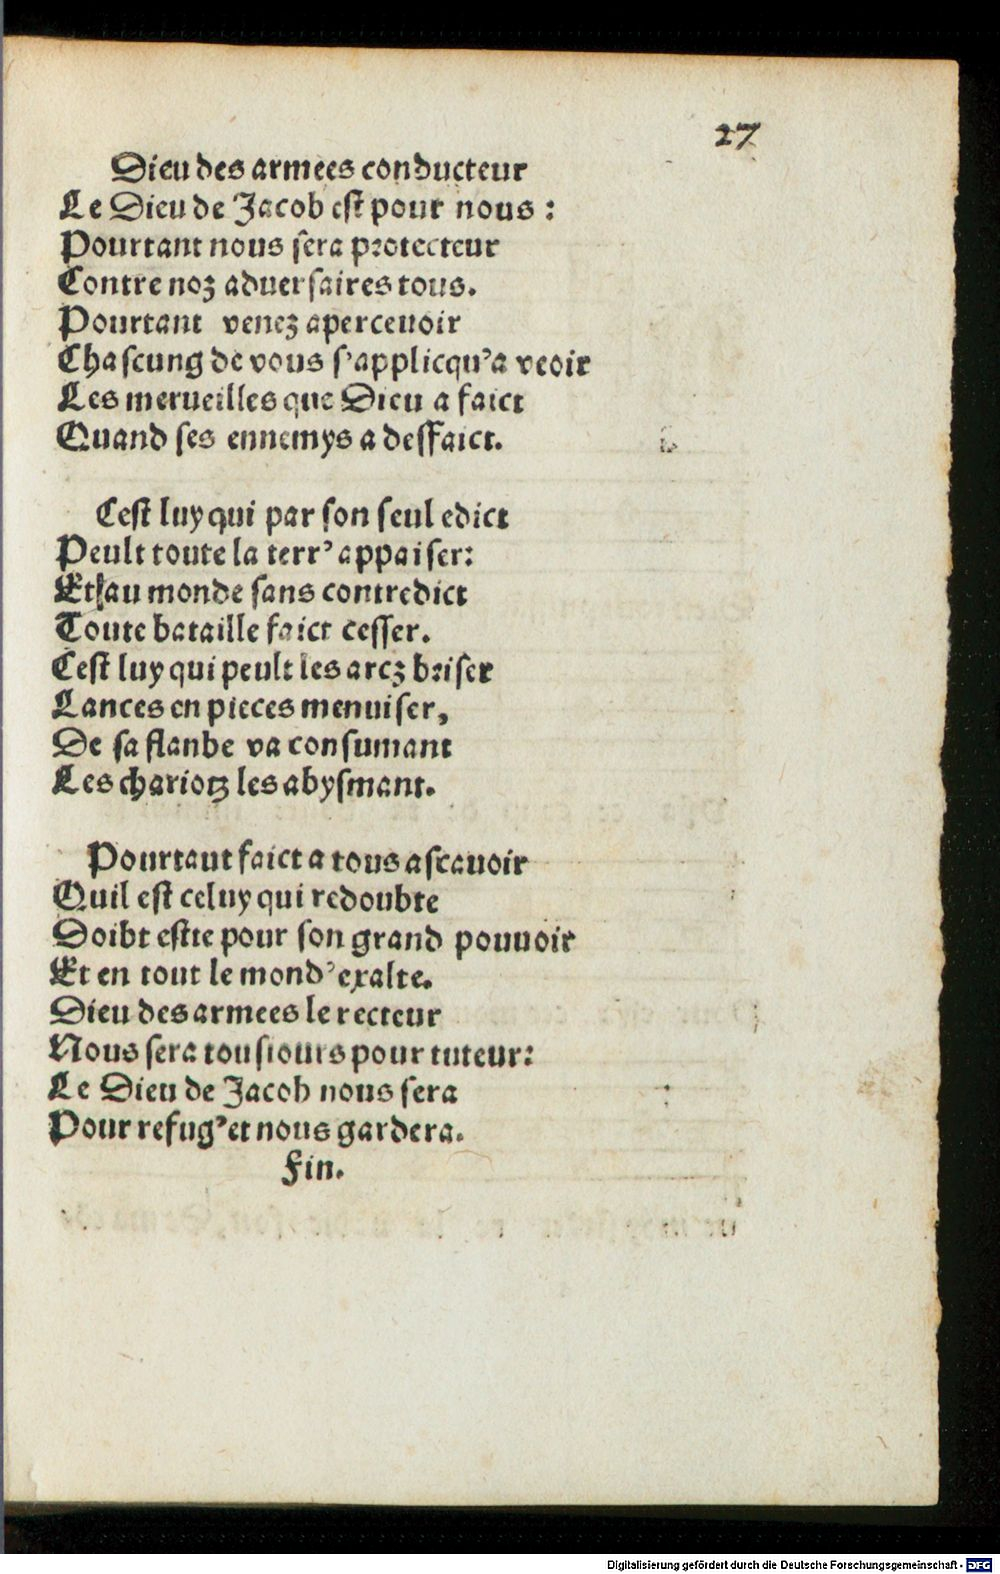 27
Dieu des armees conducteur
Le Dieu de Jacob est pour nous :
Pourtant nous sera protecteur
Contre noz aduersaires tous.
Pourtant venez aperceuoir
Chascung de vous s'applicqu'a veoir
Les merueilles que Dieu a faict
Quand ses ennemys a desfaict.
Cest luy qui par son seul edict
Peult toute la terr'appaiser:
Et au monde sans contredict
Toute bataille faict cesser.
Cest luy qui peult les arcz briser
Lances en pieces menuiser,
De sa flanbe va consumant
Les chariotz les abysmant.
Pourtaut faict a tous ascauoir
Quil est celuy qui redoubte
Doibt estre pour son grand pouuoir
Et en tout le mond'exalte.
Dieu des armees le recteur
Nous sera tousiours pour tuteur:
Le Dieu de Jacob nous sera
Pour refug'et nous gardera.
Fin.
Digitalisierung gefördert durch die Deutsche Forschungsgemeinschaft - DFG